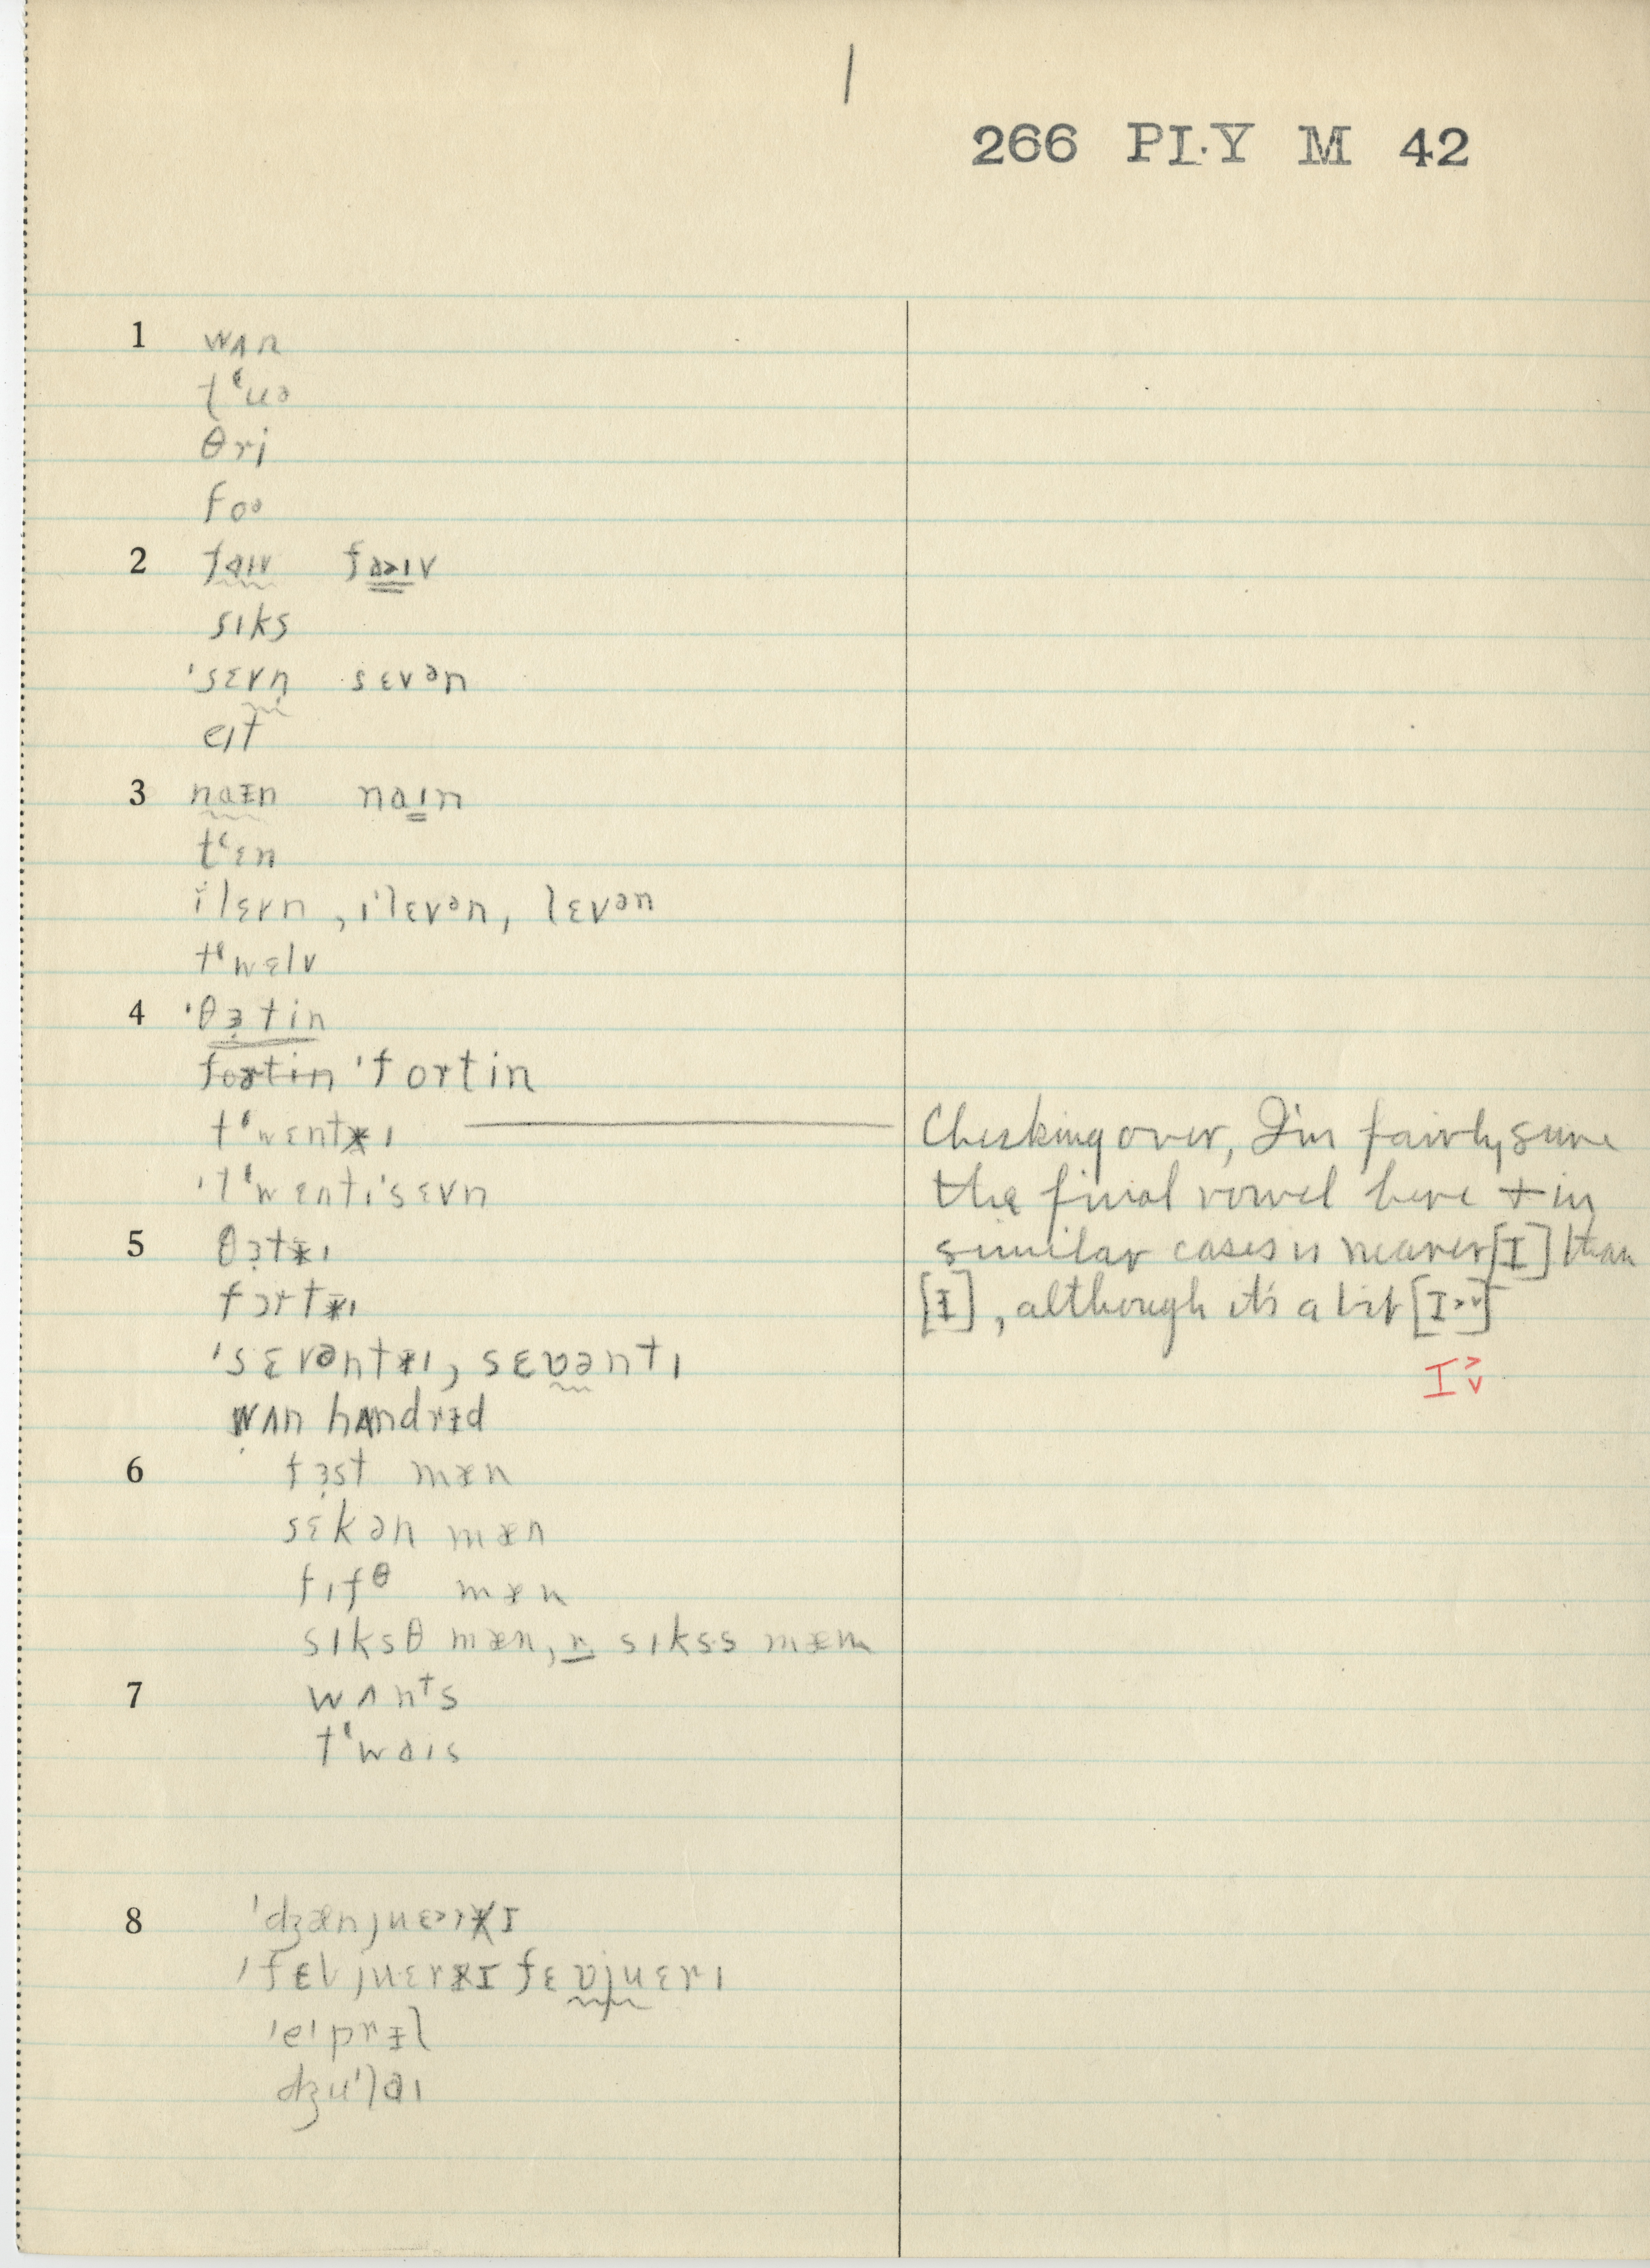 1
266 PI·Y M 42
1 wʌn
tʻuə
θri
foə
2 faɪv fa>ɪv
sɪks
ˈsɛvn̩ sɛvən
eɪt
3 naᵻn naɪn
tʻɛn
iˈlɛvn , ɪˈlɛvən, lɛvən
tʻwɛlv
4 ˈθɜtin
fortin ˈfortin
tʻwɛntɪ
ˈtʻwɛntɪˈsɛvn
5 θɜtɪ
fɔrtɪ
ˈsɛvəntɪ, sɛʋəntɪ
wʌn hʌndrᵻd
6 fɜst mæn
sɛkən mæn
fɪfθ mæn
sɪksθ mæn, r. sɪkss mæn
7 wʌnᵗs
tʻwaɪs
8 ˈdʒænjuɛ>rɪ
ˈfɛbjuɛrɪ fɛʋjuɛrɪ
ˈeɪprᵻl
dʒuˈlaɪ
Checking over, I'm fairly sure
the final vowel here + in
similar cases is nearer [I] than
[ᵻ], although it's a bit [I>˅]
I>˅